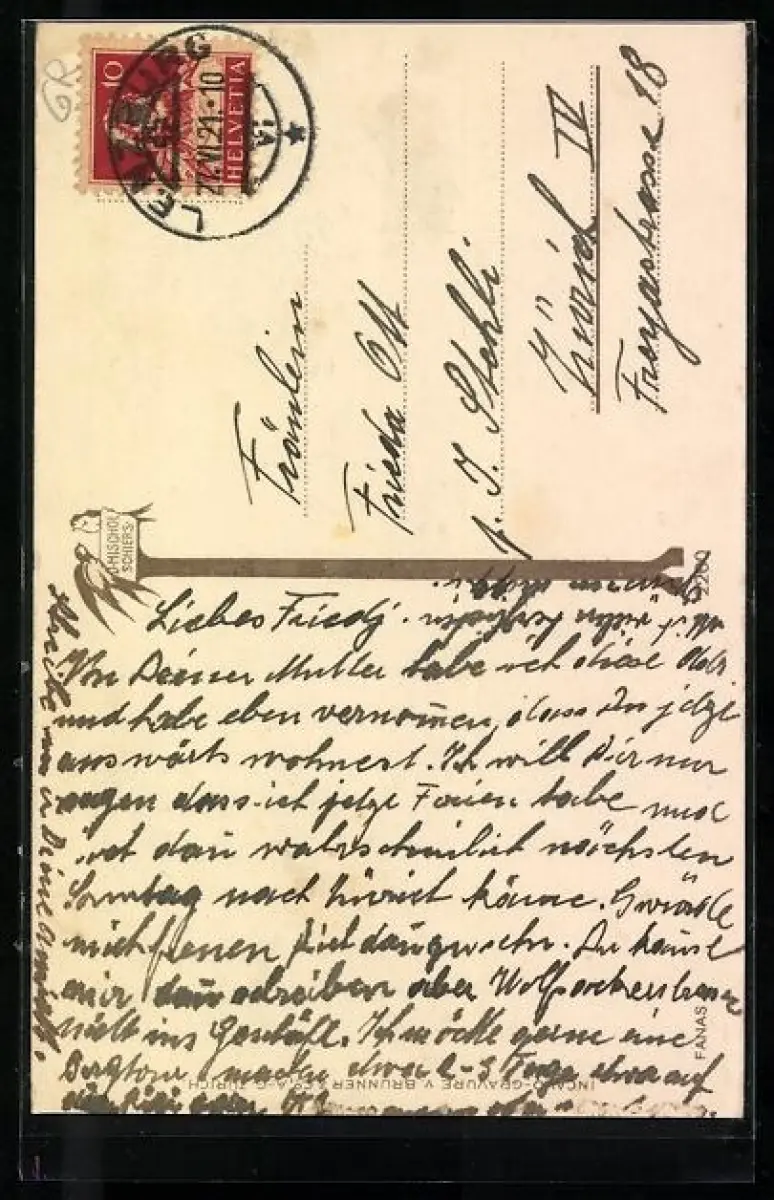 10
HELVETIA
LENZBURG
27.VI.21.-10
Fräulein
Frieda Ott
p. J. Stehli
Zürich IV
Freyastrasse 18
J. MISCHOL
SCHIERS
2200
Liebes Friedj.
Von Deiner Mutter habe ich diese Adr.
und habe eben vernommen, dass Du jetzt
auswärts wohnest. Ich will Dir nur
sagen dass ich jetzt Ferien habe und
ich dann wahrscheinlich nächsten
Sonntag nach Zürich käme. Es würde
mich freuen Dich dann zu sehn. Du kannst
mir dann schreiben aber
nicht ins Geschäft. Ich möchte gerne eine
Bergtour machen etwa 2-3 Tage etwa auf
Schreibe mir Deine Ansicht.
FANAS
INCAVO-GRAVURE V. BRUNNER & Co. A.-G. ZÜRICH